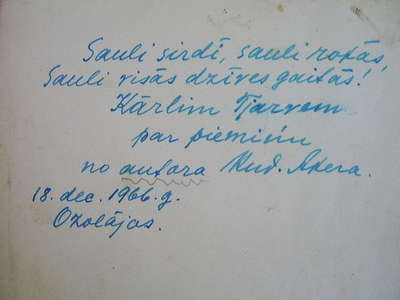 Sauli sirdī, sauli rotās,
Sauli visās dzīves gaitās!
Kārlim Tjarvem
par piemiņu
no autora Rud. Ākera.
18. dec. 1966. g.
Ozolājos.